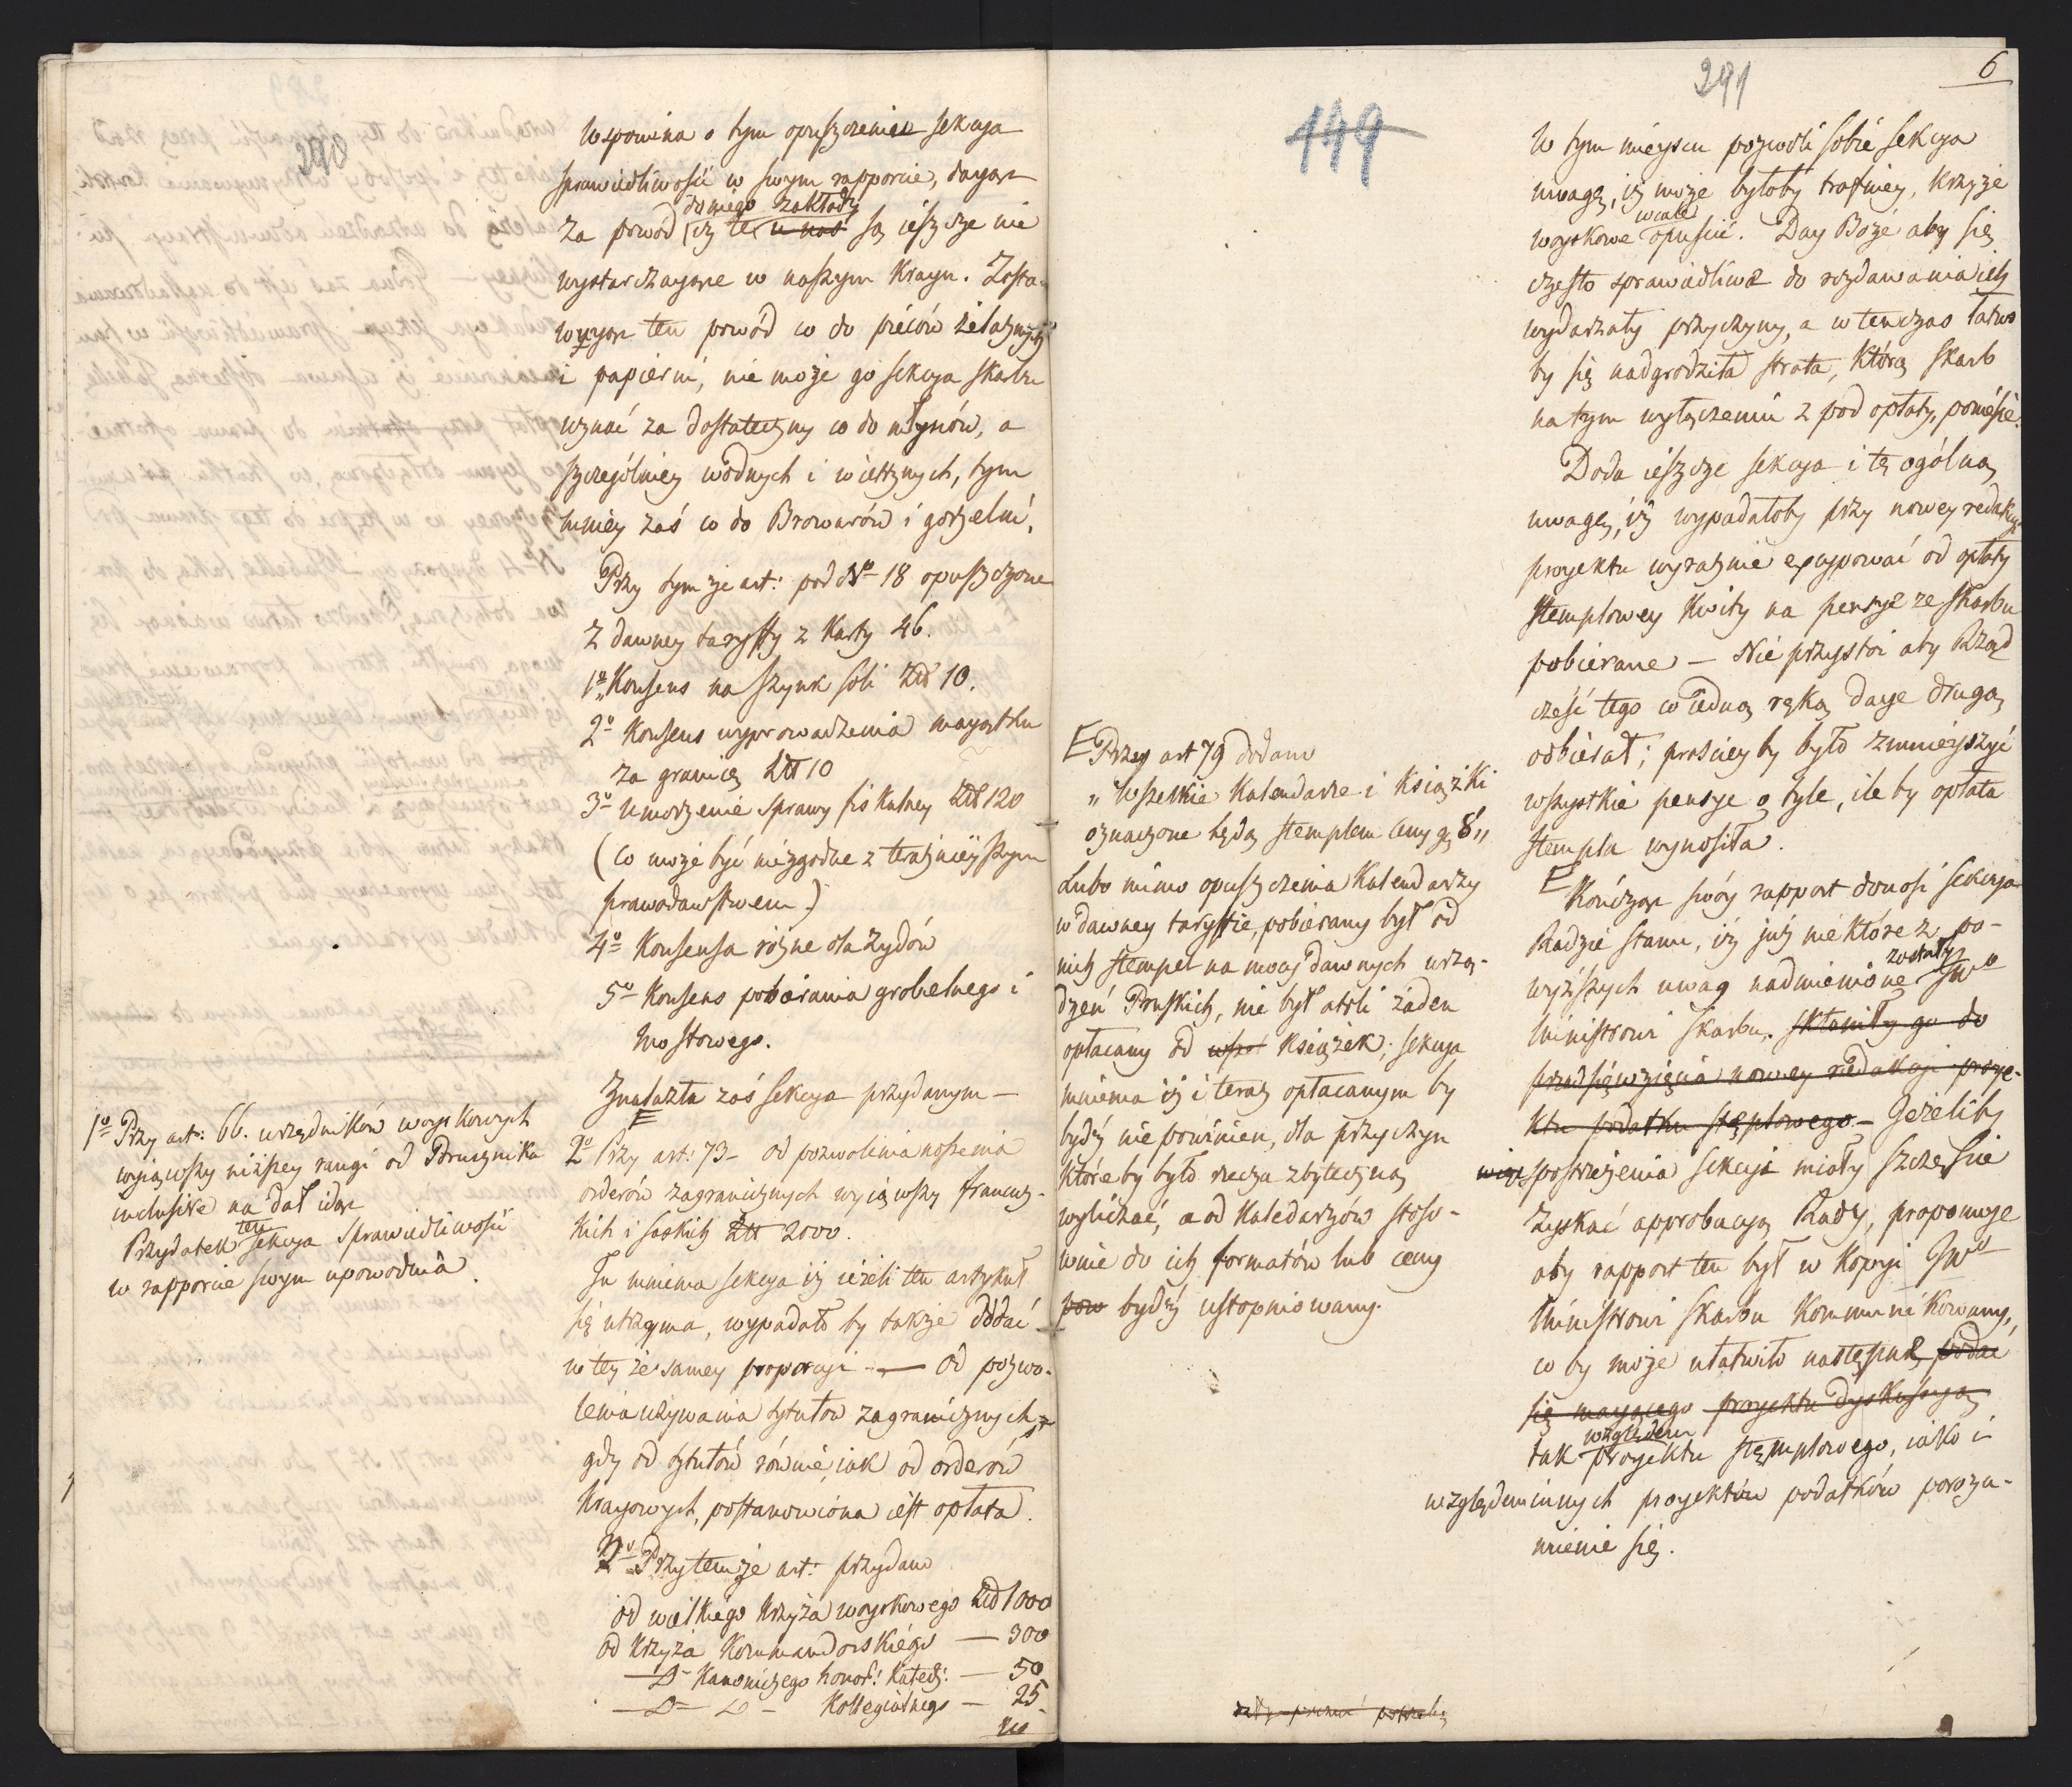 290
Wspomina o tym opuszczeniu sekcya
sprawiedliwości w swym rapporcie, daiąc
domiego zakłady
za powód iż te u nas są ieszcze nie
wystarczaiące w naszym Kraiu. Zosta-
wuiąc ten powód co do pieców żelaznych
i papierni, nie może go sekcya skarbu
uznać za dostateczny co do młynów, a
szczególniey wodnych i wietrznych, tym
mniey zaś co do Browarów i gorzelni.
Przy tym że art: pod No 18 opuszczone
z dawney taryffy z Karty 46.
1o Konsens na szynk soli Złł 10.
2o Konsens wyprowadzenia maiątku
za granicę Złł 10
3o Umorzenie sprawy fiskalney Złł 120
(co może być niezgodne z teraźnieyszym
prawodawstwem.)
4o Konsensa różne dla Żydów
5o Konsens pobierania grobelnego i
mostowego.
Znalazła zaś sekcya przydanym —
1o Przy art: 66. urzędników woyskowych
wyiąwszy niższey rangi od Porucznika
inclusive na dał idąc
ten
Przydatek sekcya sprawiedliwości
w rapporcie swym upowodnia.
2o Przy art: 73 — od pozwolenia noszenia
orderów zagranicznych wyiąwszy francuz-
kich i saskich Złł 2000.
Tu mniema sekcya iż ieżeli ten artykuł
się utrzyma, wypadało by także dodać
w tey że samey proporcyi — od pozwo-
lenia używania tytułów zagranicznych,
gdy od tytułów równie iak od orderów
Kraiowych, postanowiona iest opłata.
2o Przy tem że art: przydano
od wielkiego Krzyża woyskowego Złł 1000
od Krzyża Kommandorskiego — 300
— D — Kanoniczego honor: Katedr: — 50
— D — D — Kollegialnego — 25.
149
291
6
E Przy art 79 dodano
„ Wszelkie Kalendarze i Książki
oznaczone będą stemplem ceny gr 8 „
Lubo mimo opuszczenia Kalendarzy
w dawney taryffie, pobierany był od
nich stempel na mocy dawnych urzą-
dzeń Pruskich, nie był atoli żaden
opłacany od wsze Książek; sekcya
mniema iż i teraz opłacanym by
bydź nie powinien, dla przyczyn
któreby było rzeczą zbyteczną
wyliczać, a od Kaledarzów stoso-
wnie do ich formatów lub ceny
pow bydź ustopniowany.
W tym mieyscu pozwoli sobie sekcya
uwagę, iż może byłoby trafniey, krzyże
wcale
woyskowe opuścić. Day Boże aby się
często sprawiedliwe do rozdawania ich
wydarzały przyczyny, a w tenczas łatwo
by się nadgrodziła strata, którą skarb
na tym wyłączeniu z pod opłaty, poniesie.
Doda ieszcze sekcya i tę ogólną
uwagę, iż wypadałoby przy nowey redakcyi
proiektu wyraźnie excypować od opłaty
stemplowey Kwity na pensye ze skarbu
pobierane — Nie przystoi aby Rząd
cześć tego co iedną ręką daie drugą
odbierał; prościey by było zmnieyszyć
wszystkie pensye o tyle, ile by opłata
stempla wynosiła.
E Kończąc swóy rapport donosi sekcya
Radzie stanu, iż już niektóre z po-
zostały
wyższych uwag nadmienione JWo
Ministrowi skarbu. skłoniły go do
przedsięwzięcia nowey redakcyi proie-
ktu podatku stęplowego — Jeżeliby
więc postrzeżenia sekcyi miały szczęście
zyskać approbacyą Rady, proponuie
aby rapport ten był w Kopyi JWo
Ministrowi skarbu Kommunikowany,
co by może ułatwiło następne podać
się maiącego proiektu dyskussyą
względem
tak proiektu stęmplowego, iako i
względem innych proiektów podatków porozu-
mienie się.